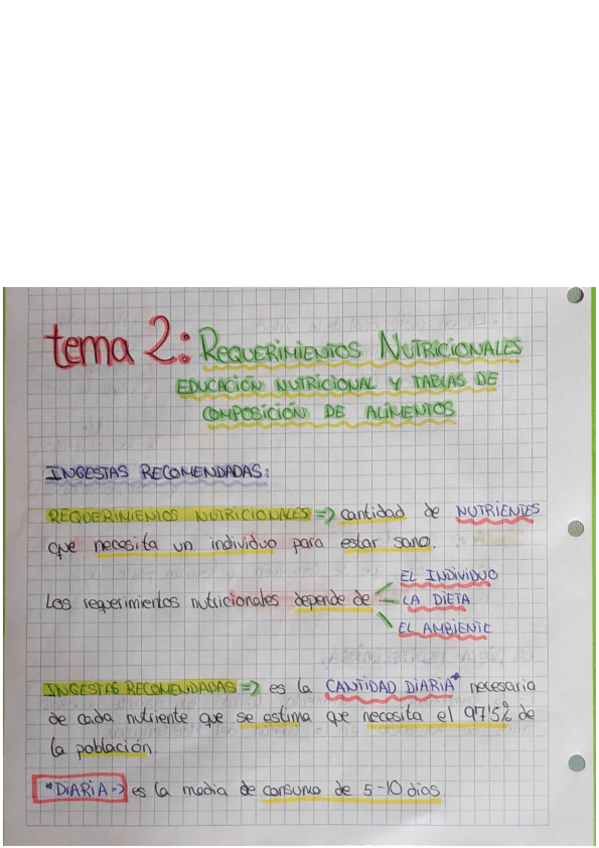 tema 2: REQUERIMIENTOS NUTRICIONALES
EDUCACIÓN NUTRICIONAL Y TABLAS DE
COMPOSICIÓN DE ALIMENTOS
INGESTAS RECOMENDADAS:
REQUERIMIENTOS NUTRICIONALES => cantidad de NUTRIENTES
que necesita un individuo para estar sano.
EL INDIVIDUO
Los requerimientos nutricionales depende de – LA DIETA
EL AMBIENTE
INGESTAS RECOMENDADAS => es la CANTIDAD DIARIA* necesaria
de cada nutriente que se estima que necesita el 97'5% de
la población.
*DIARIA -> es la media de consumo de 5-10 dias